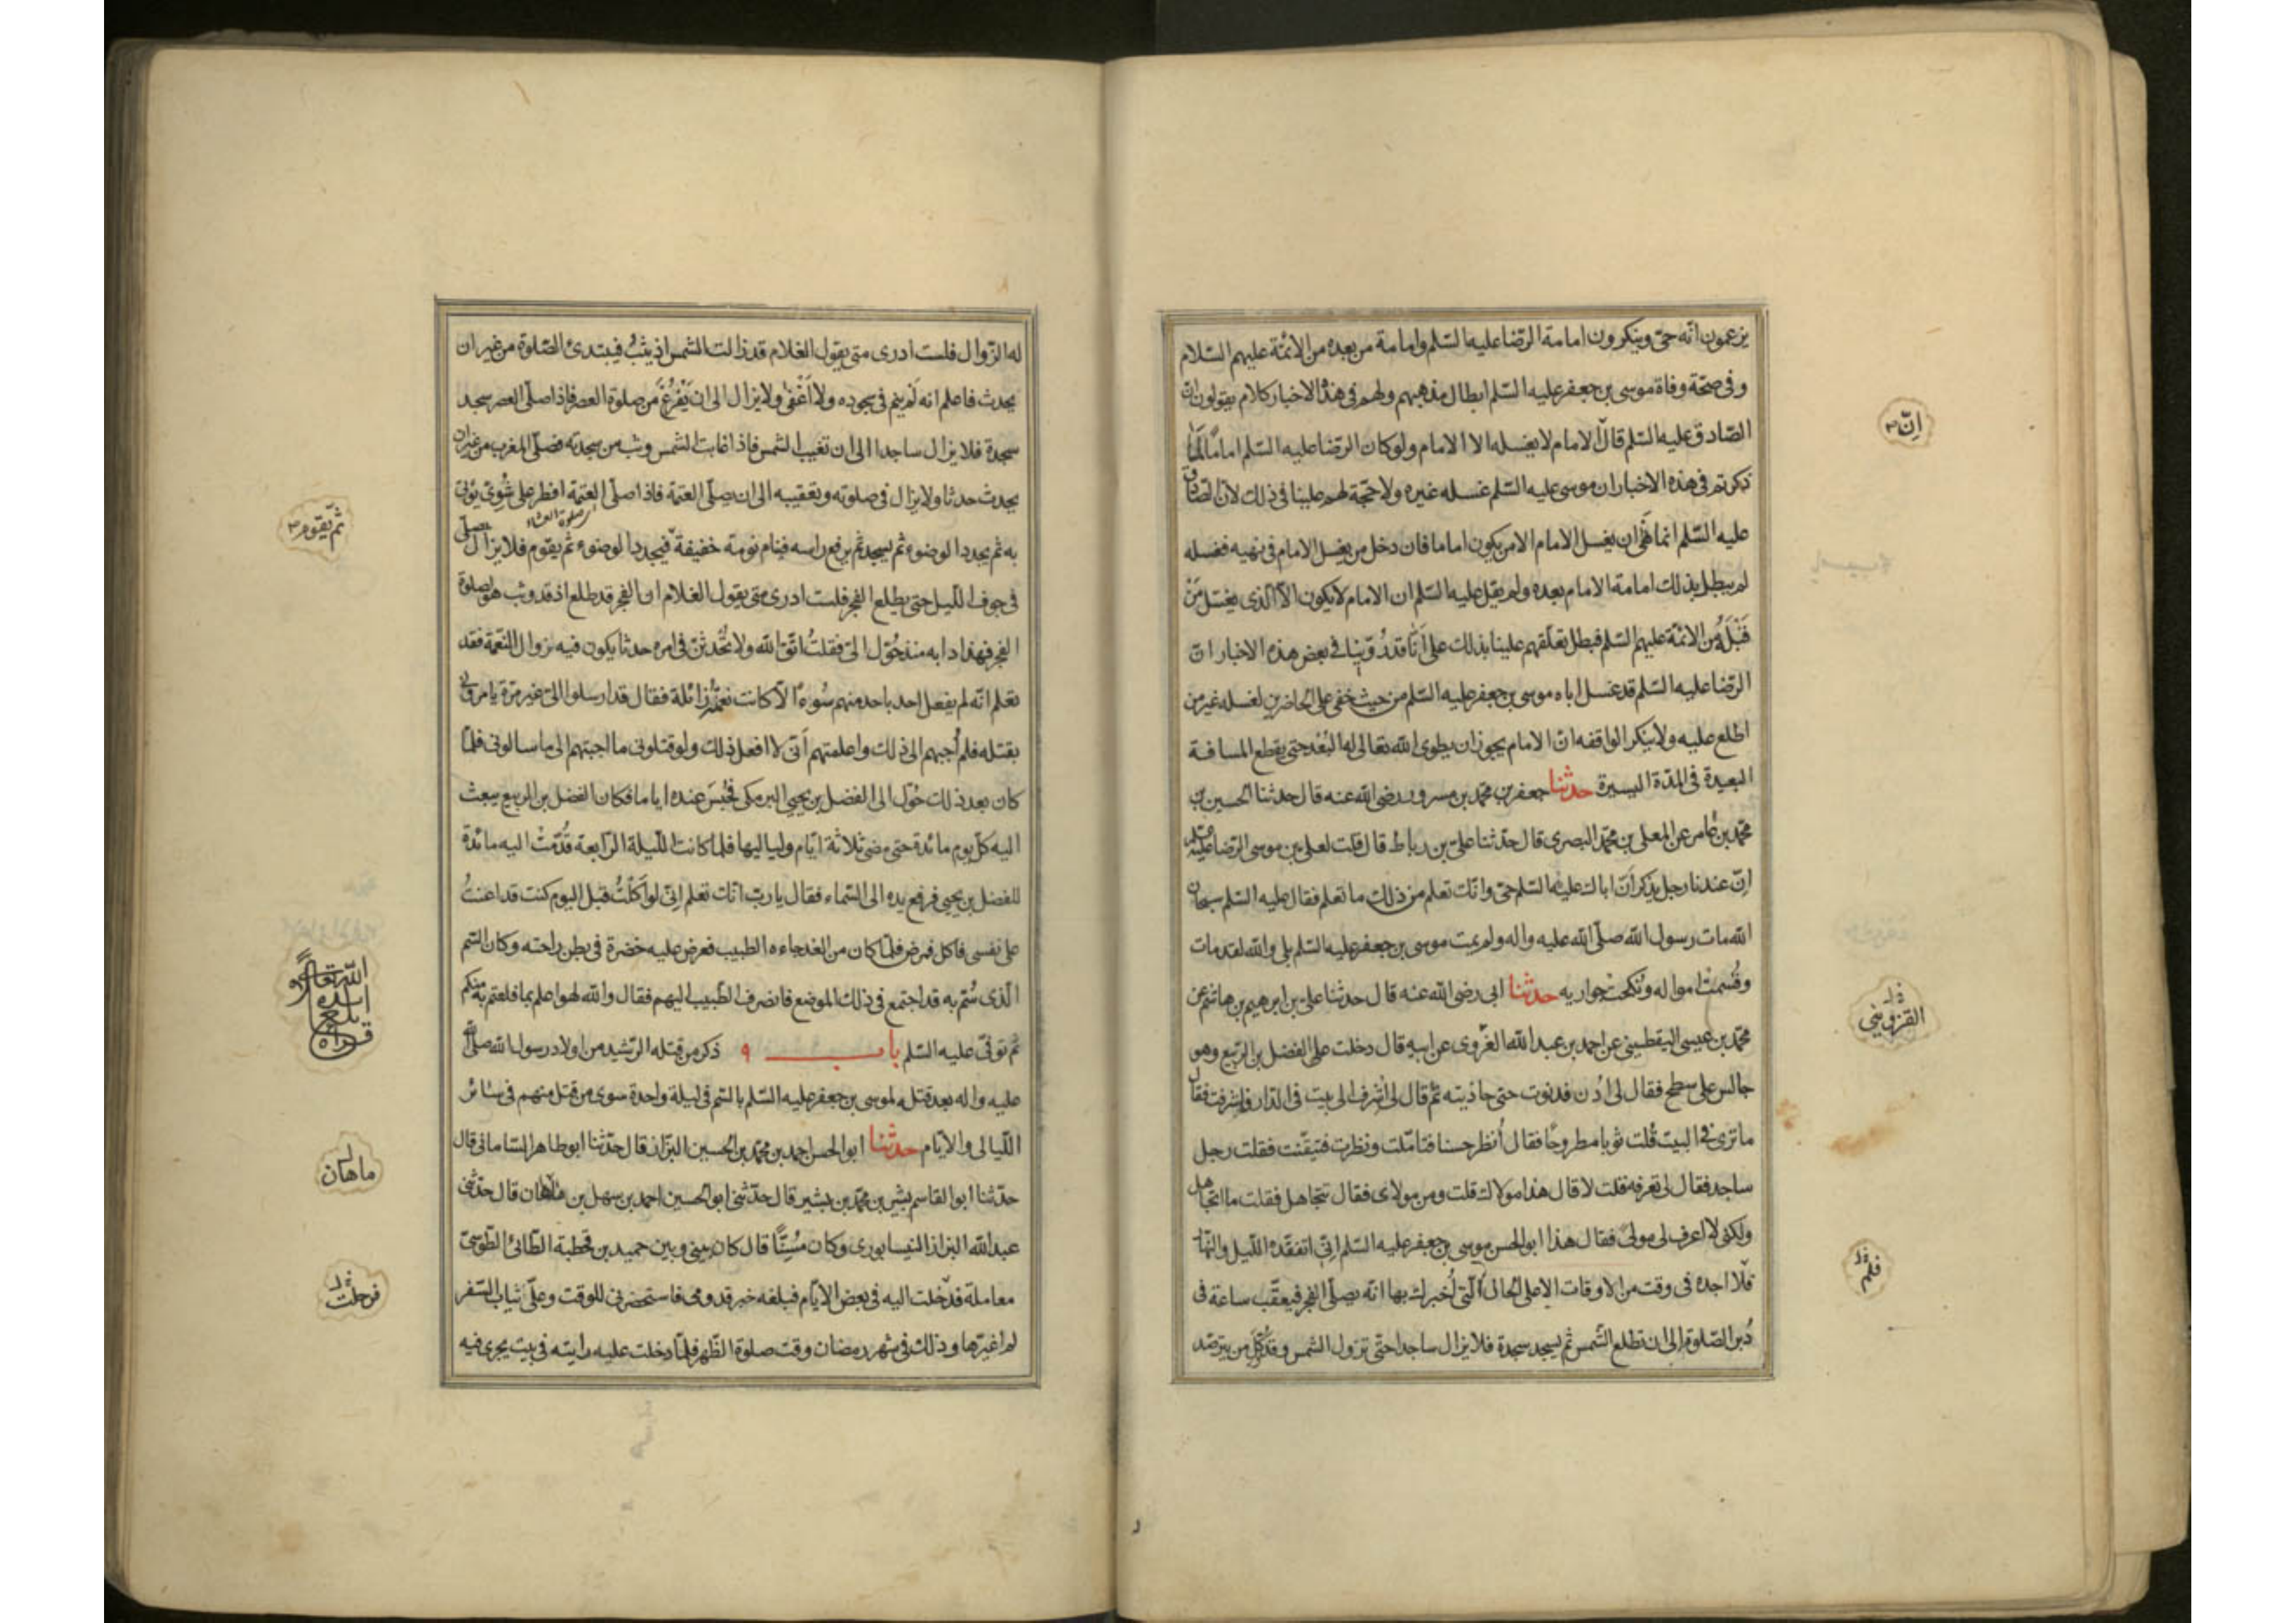 يزعمون انّه حىّ وينكرون امامة الرّضا عليه السّلم وامامة من بعده من الائمّة عليهم السّلام
وفى صحّة وفاة موسى بن جعفر عليه السّلم ابطال مذهبهم ولهم فى هذه الاخبار كلام يقولون انّ
الصّادق عليه السّلم قال الامام لا يغسله الا الامام ولو كان الرّضا عليه السّلم اماما لما
ذكرتم فى هذه الاخبار ان موسى عليه السّلم غسله غيره ولا حجّة لهم علينا فى ذلك لانّ الصّادق
عليه السّلم انما نهى ان يغسل الامام الا من يكون اماما فان دخل من يغسل الامام فى نهيه فغسله
لم يبطل بذلك امامة الامام بعده ولم يقل عليه السّلم ان الامام لا يكون الّا الّذى يغسل مَنْ
قَبْلَهُ من الائمّة عليهم السّلم فبطل تعلّقهم علينا بذلك على انّا قد رُوّينا فى بعض هذه الاخبار انّ
الرّضا عليه السّلم قد غسل اباه موسى بن جعفر عليه السّلم من حيث خفى على الحاضرين لغسله غير من
اطلع عليه ولا ينكر الواقفه انّ الامام يجوز ان يطوى الله تعالى له البُعْد حتى يقطع المسافة
البعيدة فى المدّة اليسيرة حدثنا جعفر بن محمّد بن مسرور رضى الله عنه قال حدثنا الحسين بن
محمّد بن عامر عن المعلى بن محمّد البصرى قال حدّثنا على بن رباط قال قلت لعلى بن موسى الرّضا عليه
انّ عندنا رجل يذكر انّ اباك عليه السّلم حىّ وانّك تعلم من ذلك ما تعلم فقال عليه السّلم سبحان
الله مات رسول الله صلّى الله عليه واله ولم يمت موسى بن جعفر عليه السّلم بلى والله لقد مات
وقُسمتْ امواله ونُكحتْ جواريه حدثنا ابى رضى الله عنه قال حدثنا على بن ابرهيم بن هاشم عن
محمّد بن عيسى اليقطينى عن احمد بن عبد الله الغَرَوى عن ابيه قال دخلت على الفضل بن الرّبيع وهو
جالس على سطح فقال لى ادْن فدنوت حتى حاذيته ثم قال لى اشرف الى بيت فى الدّار فاشرفت فقال
ما ترى فى البيت قُلت ثوبا مطروحًا فقال اُنظر حسنا فتامّلت ونظرت فتيقّنت فقلت رجل
ساجد فقال لى تعرفه قلت لا قال هذا مولاك قلت ومن مولاى فقال تتجاهل فقلت ما اتجاهل
ولكنى لا اعرف لى مولىً فقال هذا ابو الحسن موسى بن جعفر عليه السّلم انّى اتفقّده اللّيل والنّهار
فلا اجده فى وقت من الاوقات الا على الحال الّتى اُخبرك بها انّه يصلّى الفجر فيعقّب ساعة فى
دُبر الصّلوة الى ان تطلع الشّمس ثم يسجد سجدة فلا يزال ساجدا حتّى تزول الشمس وقد وُكّل من يترصّد
انّ
القزوينى
فلم
له الزّوال فلست ادرى متى يقول الغلام قد زالت الشمس اذ يثبُ فيبتدئ الصّلوة من غير ان
يحدث فاعلم انه لَمْ ينم فى سجوده ولا اَغْفى ولا يزال الى ان يَفْرُغَ من صلوة العصر فاذا صلّى العصر سجد
سجدة فلا يزال ساجدا الى ان تغيب الشمس فاذا غابت الشّمس وثب من سجدته فصلّى المغرب من غير ان
يحدث حدثا ولا يزال فى صلوته وتعقيبه الى ان يصلّى العتمة فاذا صلّى العتمة افطر على شُوِىّ يؤتى
به ثم يجدد الوضوء ثم يسجد ثم يرفع راسه فينام نومة خفيفة فيجدد الوضوء ثم يقوم فلا يزال يصلّى
فى جوف اللّيل حتى يطلع الفجر فلست ادرى متى يقول الغلام ان الفجر قد طلع اذ قد وثب هو لصلوة
الفجر فهذا دابه منذ حُوّل الىّ فقلتُ اتّق الله ولا تُحْدثنّ فى امره حدثا يكون فيه زوال النّعمة فقد
تعلم انّه لم يفعل احد باحد منهم سُوءًا الّا كانت نعمته زائلة فقال قد ارسلوا الىّ غير مرّة يامرونى
بقتله فلم اُجبهم الى ذلك واعلمتهم اَنّى لا افعل ذلك ولو قتلونى ما اجبتهم الى ما سالونى فلمّا
كان بعد ذلك حُوّل الى الفضل بن يحيى البرمكى فحُبسَ عنده اياما فكان الفضل بن الربيع يبعث
اليه كلّ يوم مائدة حتى مضى ثلاثة ايّام ولياليها فلمّا كانت اللّيلة الرّابعة قُدّمتْ اليه مائدة
للفضل بن يحيى فرفع يده الى السّماء فقال يا ربّ انّك تعلم انّى لو اَكَلْتُ قبل اليوم كنت قد اعنتُ
على نفسى فاكل فمرض فلمّا كان من الغد جاءه الطّبيب فعرض عليه خضرة فى بطن راحته وكان السّم
الّذى سُمّ به قد اجتمع فى ذلك الموضع فانصرف الطّبيب اليهم فقال والله لهو اعلم بما فعلتم به منكم
ثم توفّى عليه السّلم باب ٩ ذكر من قتله الرّشيد من اولاد رسول الله صلّى الله
عليه واله بعد قتله لموسى بن جعفر عليه السّلم بالسّم فى ليلة واحدة سوى من قتل منهم فى سائر
اللّيالى والايّام حدثنا ابو الحسن احمد بن محمّد بن الحسين البزّاز قال حدّثنا ابو طاهر السّامانى قال
حدّثنا ابو القاسم بشر بن محمّد بن بشير قال حدّثنى ابو الحسين احمد بن سهل بن ماهان قال حدّثنى
عبد الله البزاز النّيسابورى وكان مُسِنًّا قال كان بينى وبين حميد بن قحطبة الطّائى الطّوسىّ
معاملة فدخلت اليه فى بعض الايّام فبلغه خبر قدومى فاستحضرنى للوقت وعلىّ ثياب السّفر
لم اغيّرها وذلك فى شهر رمضان وقت صلوة الظّهر فلمّا دخلت عليه رايته فى بيت يجرى فيه
ثمّ يقوم
ماهان
فرحلت